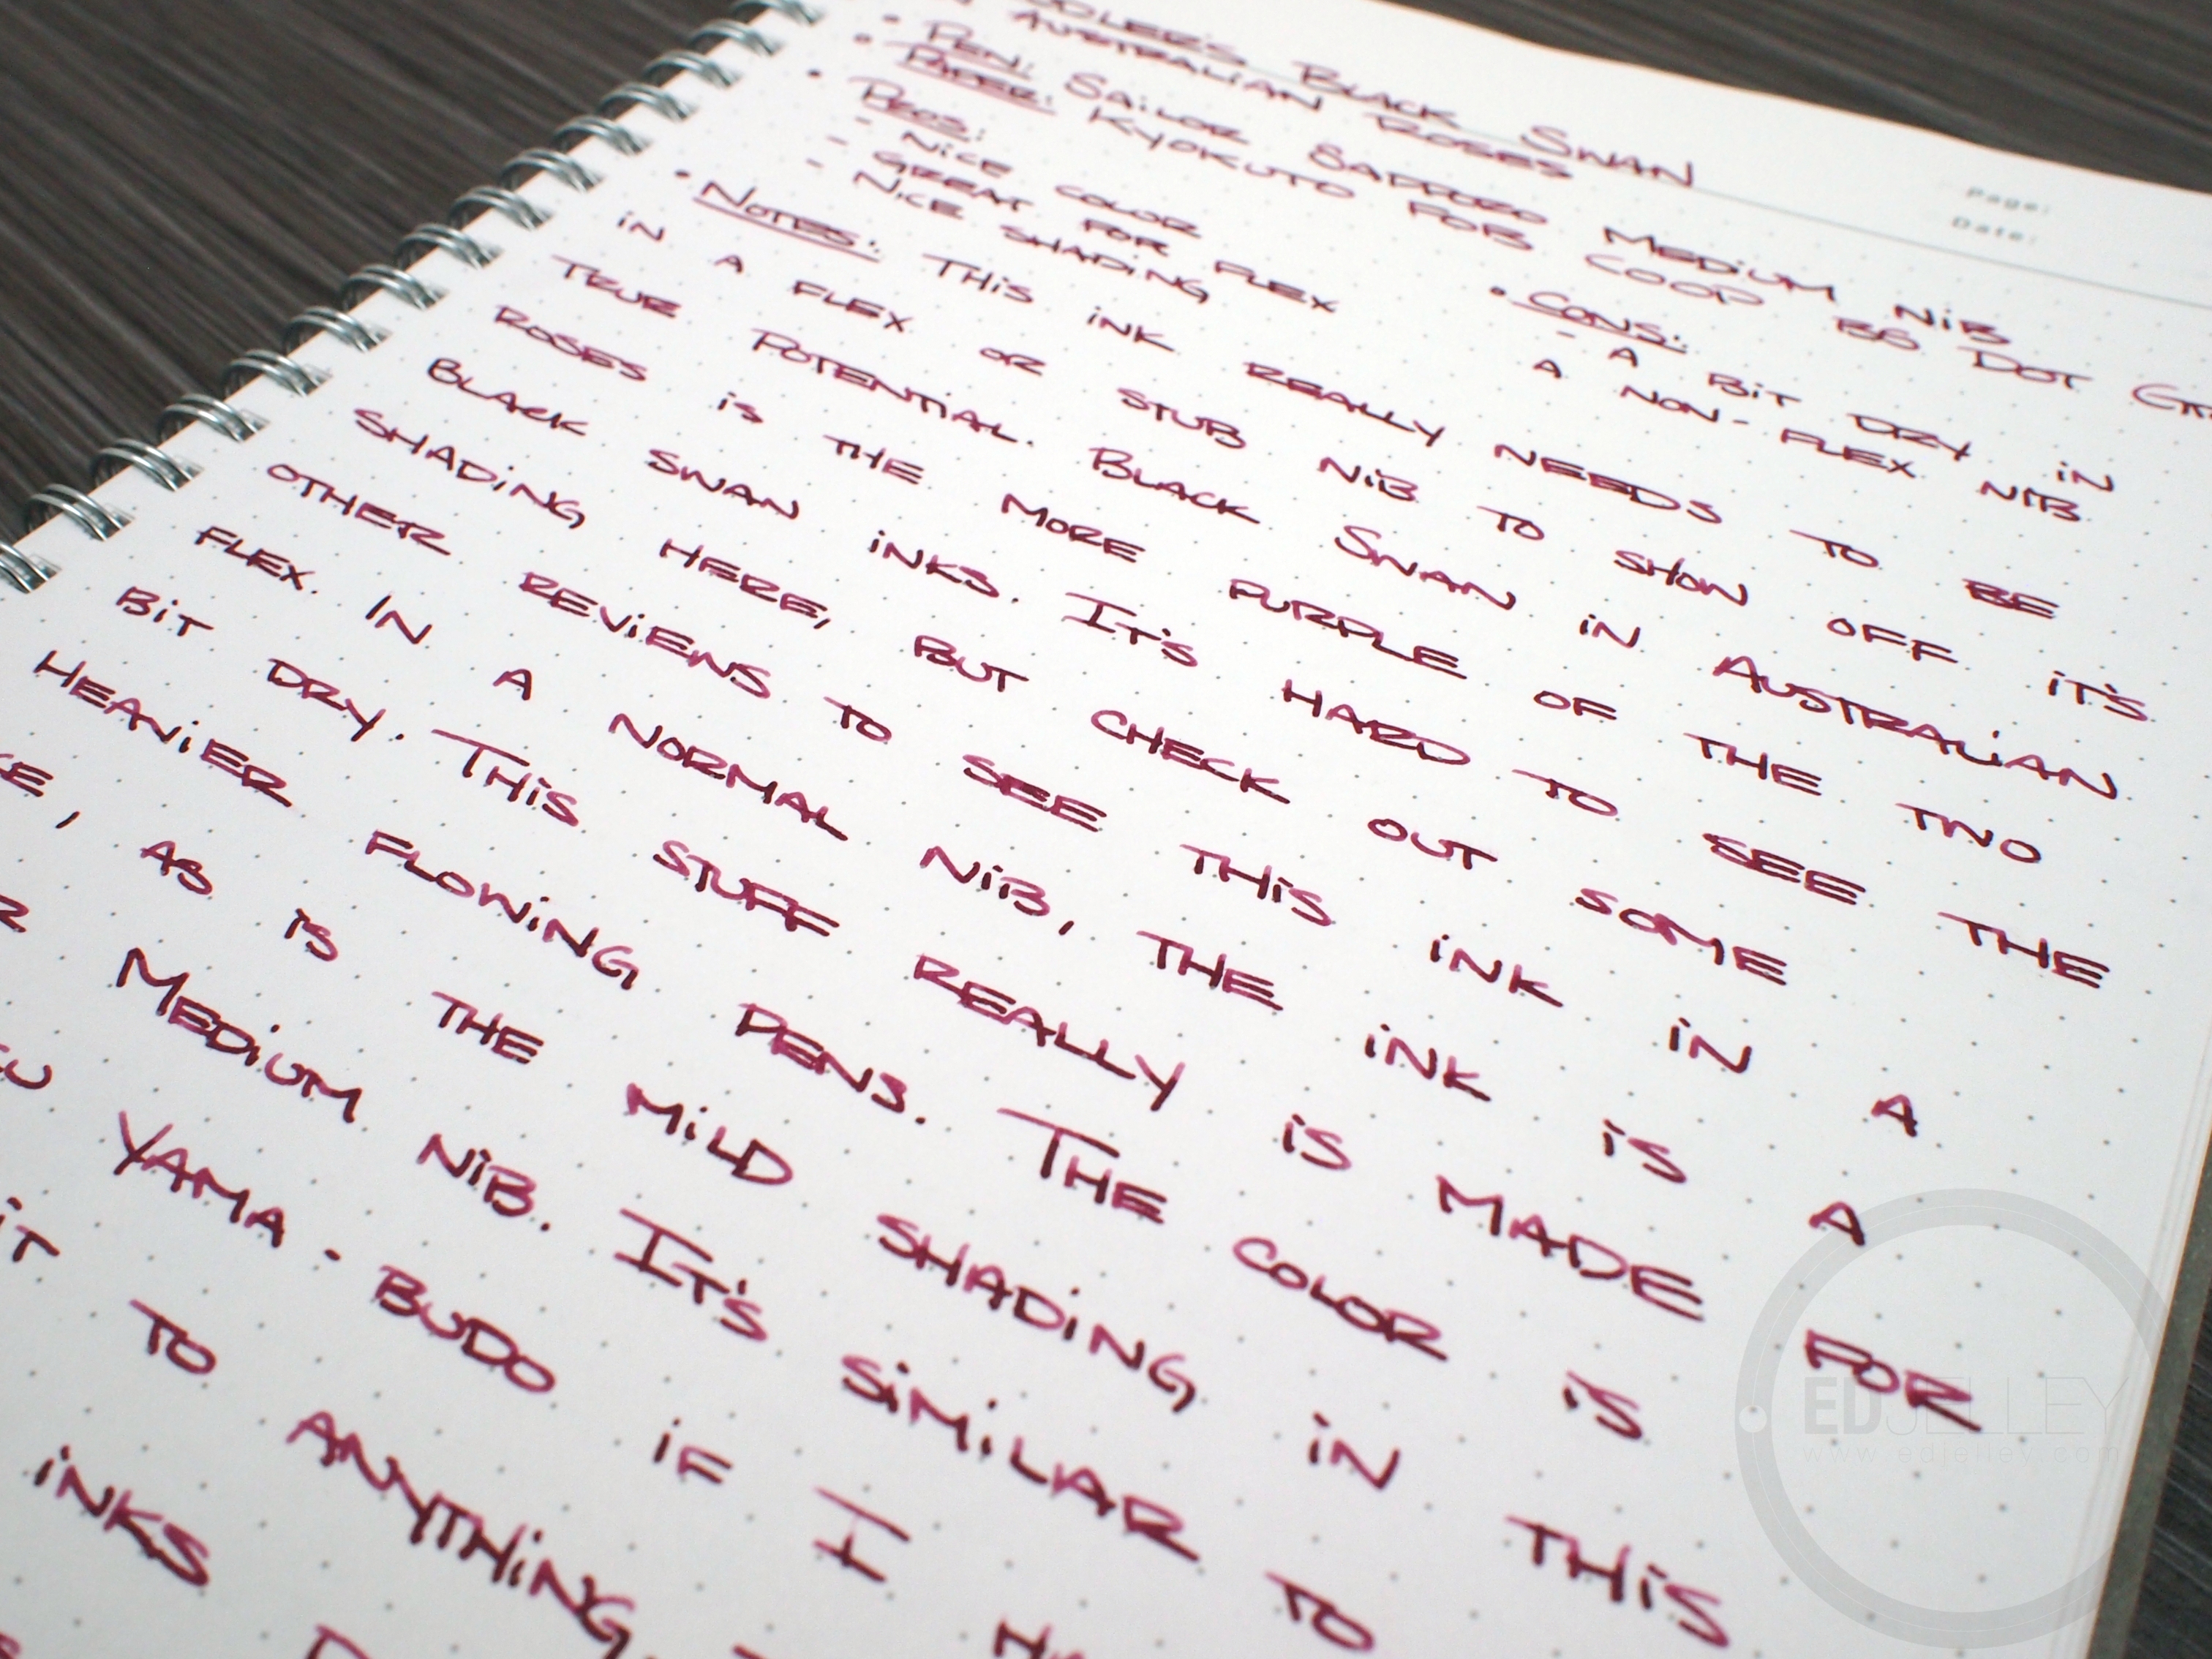 BLACK SWAN
AUSTRALIAN ROSES
Page:
Date:
• PEN: SAILOR SAPPORO MEDIUM NIB
• PAPER: KYOKUTO FOB COOP B5 DOT
• PROS:
- NICE COLOR
- GREAT FOR FLEX
- NICE SHADING
• CONS:
- A BIT DRY IN
A NON-FLEX NIB
• NOTES: THIS INK REALLY NEEDS TO BE
IN A FLEX OR STUB NIB TO SHOW OFF IT'S
TRUE POTENTIAL. BLACK SWAN IN AUSTRALIAN
ROSES IS THE MORE PURPLE OF THE TWO
BLACK SWAN INKS. IT'S HARD TO SEE THE
SHADING HERE, BUT CHECK OUT SOME
OTHER REVIEWS TO SEE THIS INK IN A
FLEX. IN A NORMAL NIB, THE INK IS A
BIT DRY. THIS STUFF REALLY IS MADE FOR
HEAVIER FLOWING PENS. THE COLOR IS
, AS IS THE MILD SHADING IN THIS
MEDIUM NIB. IT'S SIMILAR TO
YAMA-BUDO IF I
IT TO ANYTHING.
INKS
EDJELLEY
www.edjelley.com